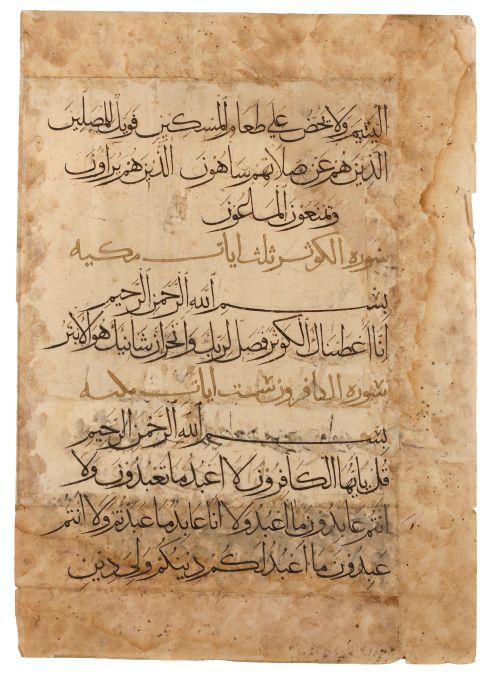 اليتيم ولا يحض على طعام المسكين فويل للمصلين
الذين هم عن صلاتهم ساهون الذين هم يراون
ويمنعون الماعون
سورة الكوثر ثلث ايات مكيه
بسم الله الرحمن الرحيم
انا اعطيناك الكوثر فصل لربك وانحر ان شانيك هو الابتر
سورة الكافرون ست ايات مكيه
بسم الله الرحمن الرحيم
قل يايها الكافرون لا اعبد ما تعبدون ولا
انتم عابدون ما اعبد ولا انا عابد ما عبدتم ولا انتم
عبدون ما اعبد لكم دينكم ولي دين